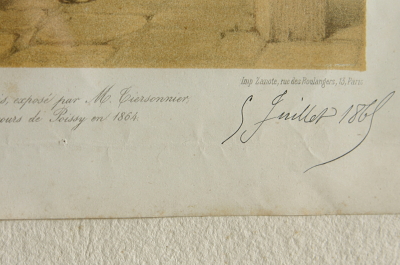 Imp. Lasote, rue des Boulangers, 13, Paris.
s, exposé par M. Tiersonnier,
ours de Poissy en 1864.
5 Juillet 1865